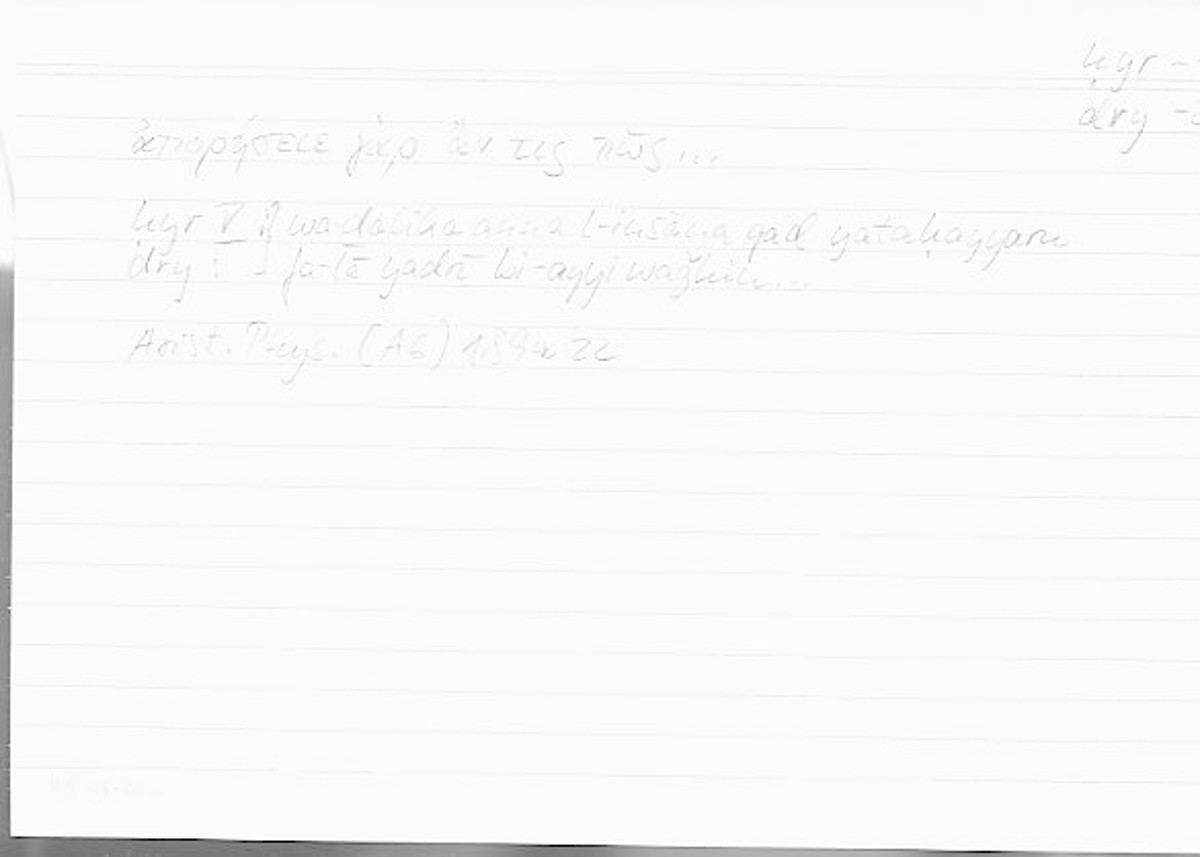 ḥyr -
dry -
ἀπορήσειε γὰρ ἄν τις πῶς...
ḥyr V :] wa ḏālika anna l-insāna qad yataḥayyaru
dry : ] fa-lā yadrī bi-ayyi waǧhin...
Arist. Phys. (A6) 189a22